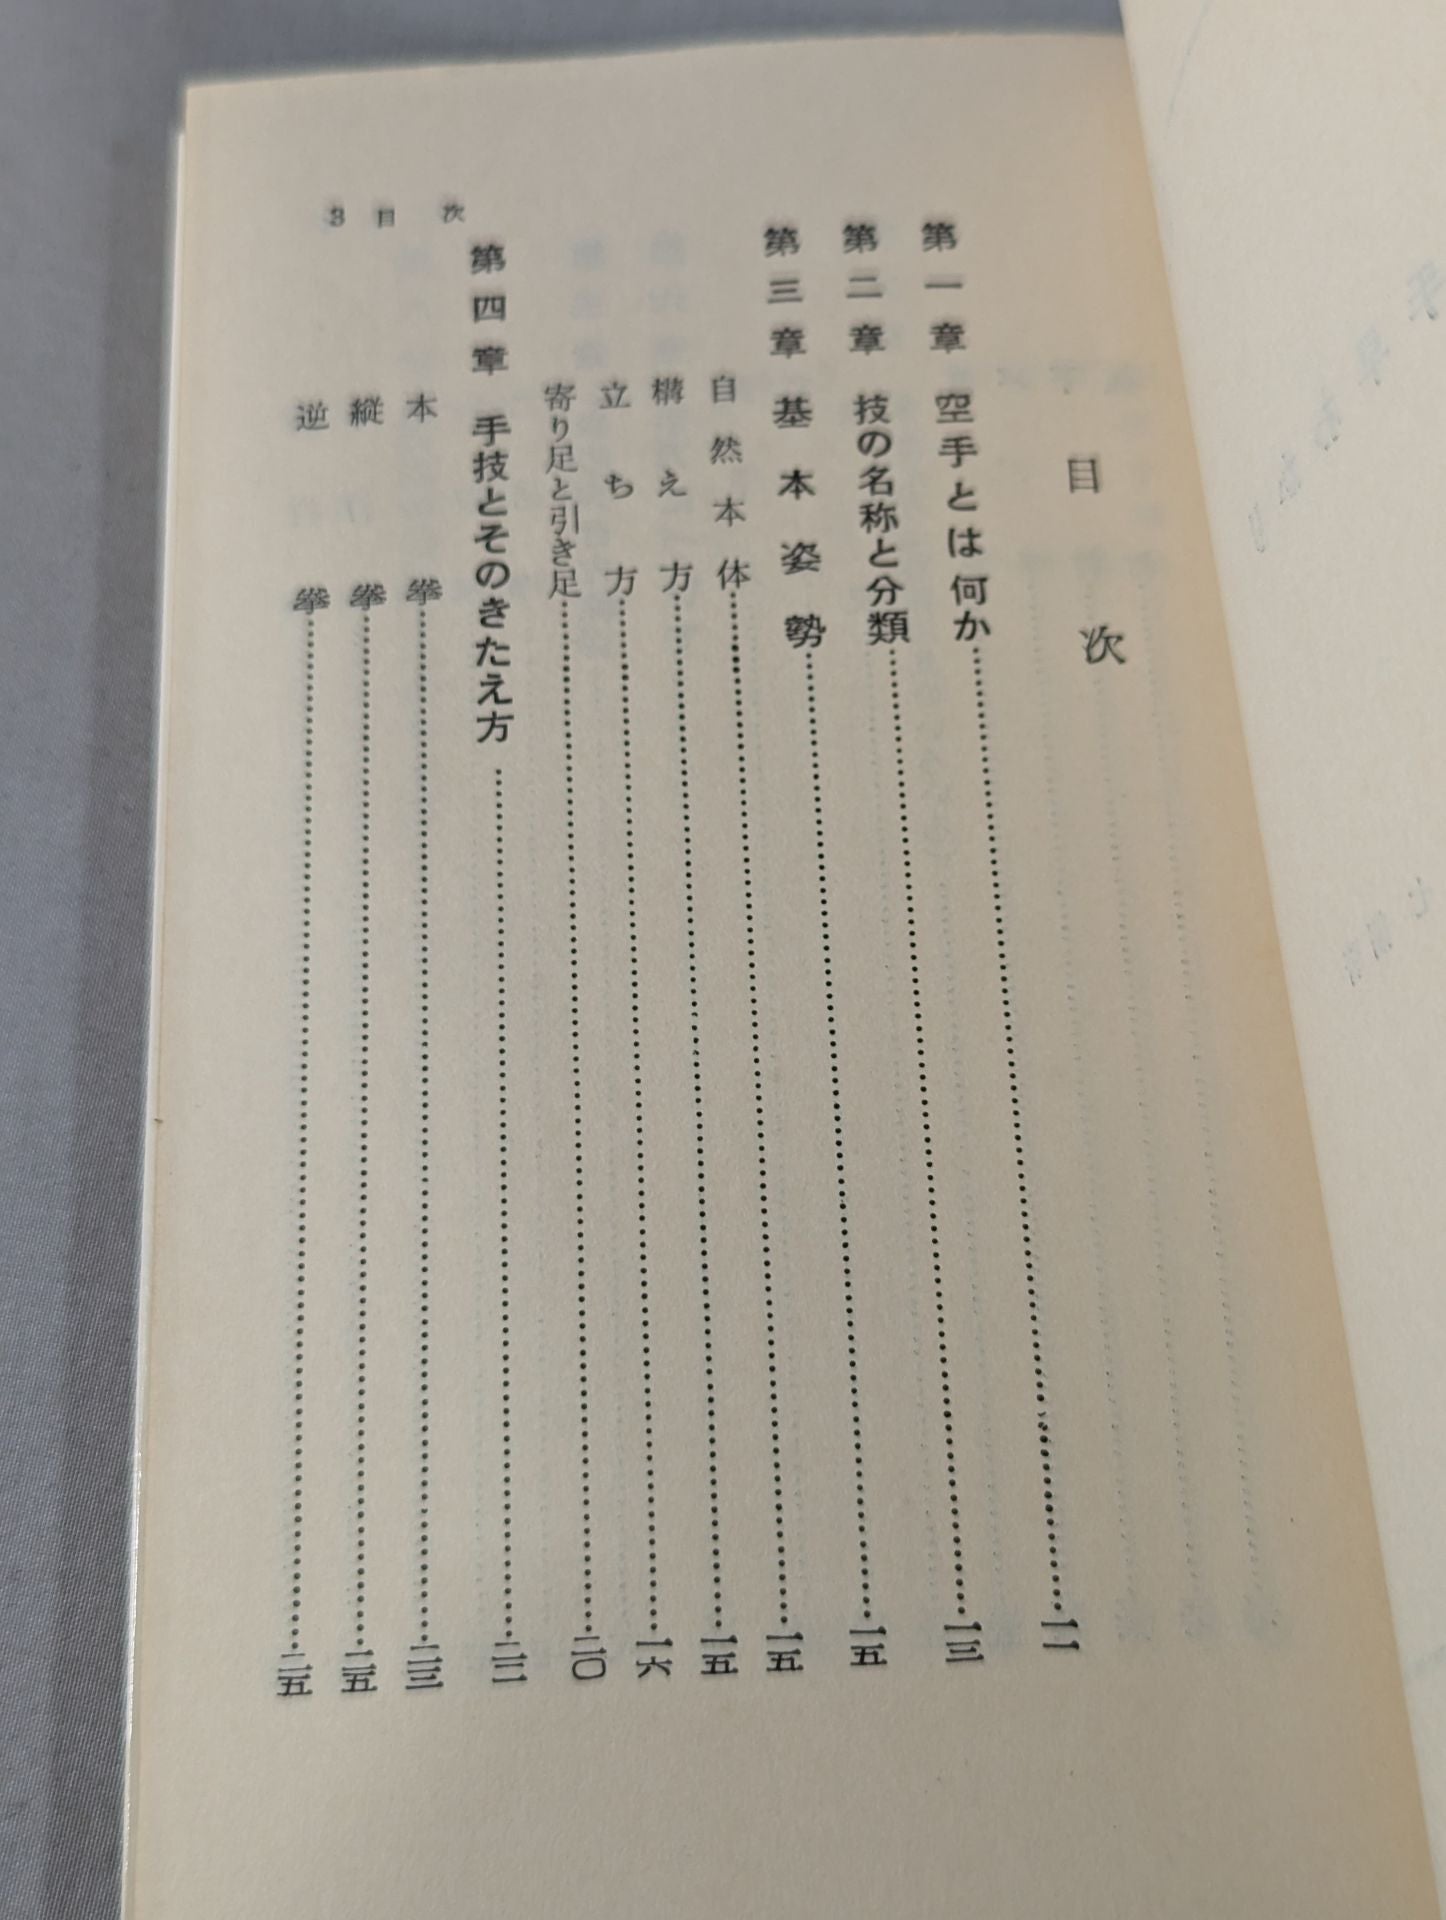 目次
第一章 空手とは何か……一一
第二章 技の名称と分類……一三
第三章 基本姿勢……一五
自然本体……一五
構え方……一五
立ち方……一六
寄り足と引き足……二〇
第四章 手技とそのきたえ方……二二
本拳……二三
縦拳……二五
逆拳……二五
3 目次